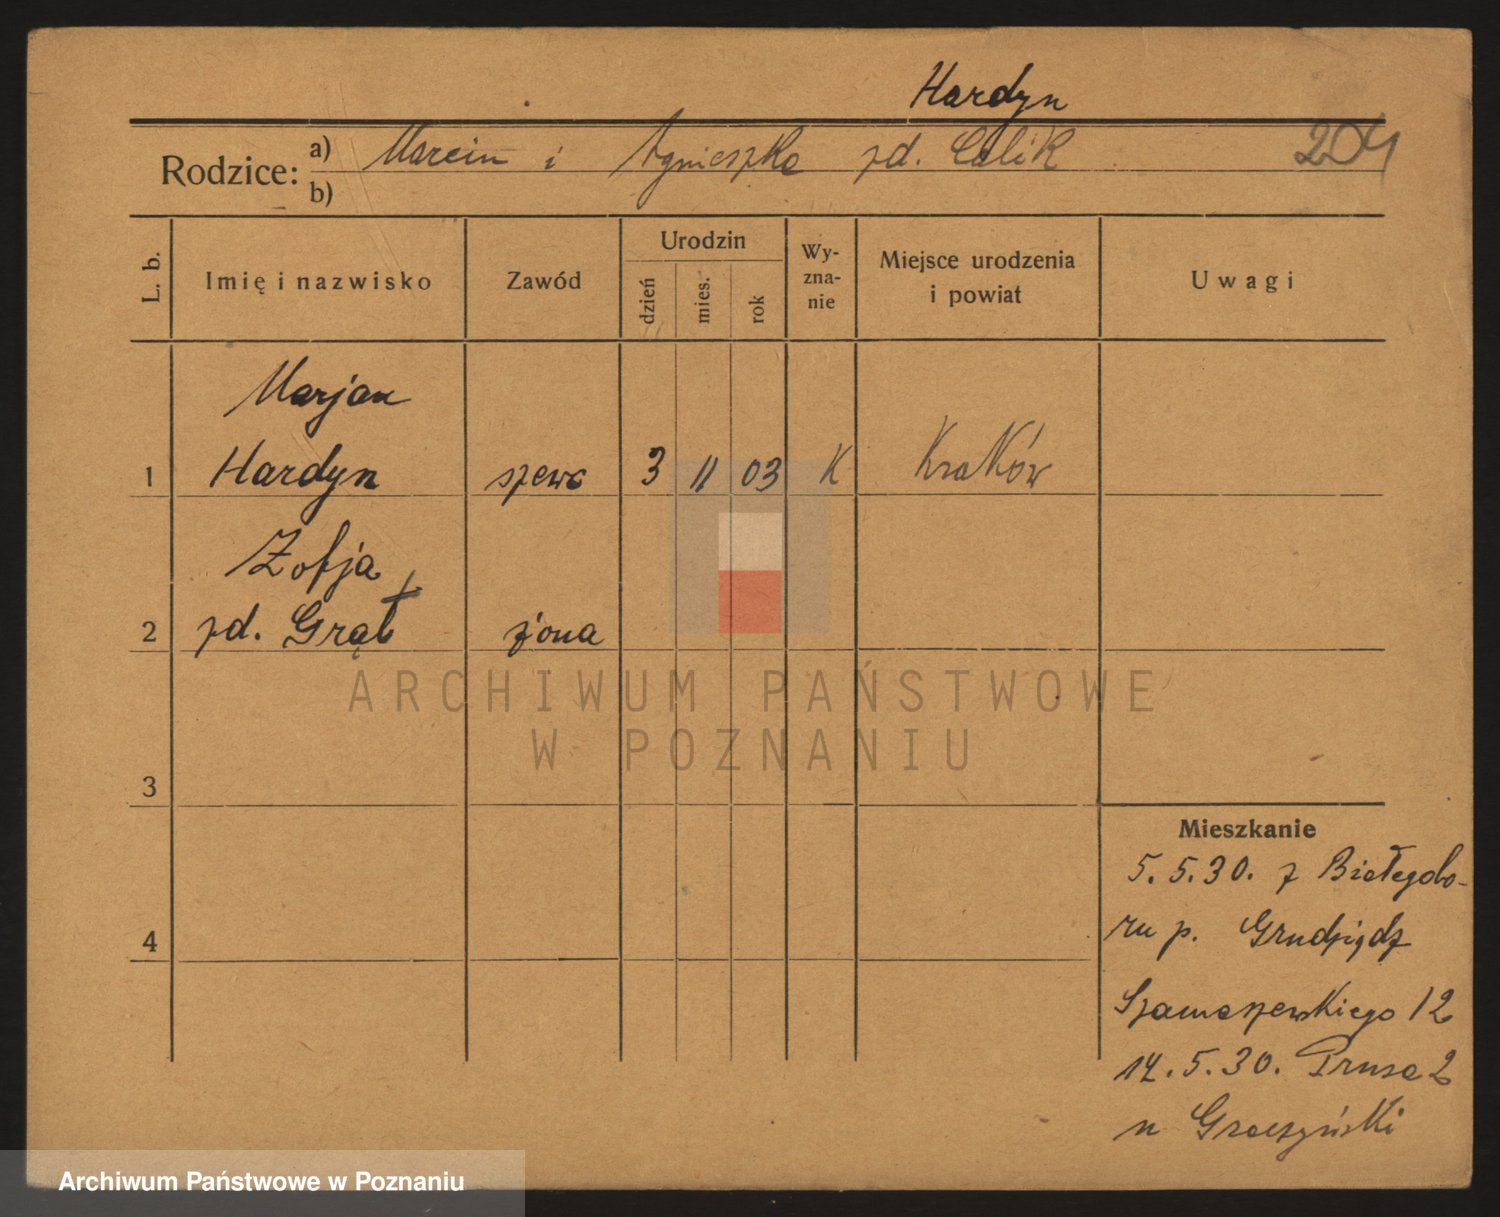 Hardyn
Rodzice: a) Marcin i Agnieszka zd. Calik 204
b)
L. b. Imię i nazwisko Zawód Urodzin dzień mies. rok Wyznanie Miejsce urodzenia i powiat Uwagi
Marjan
1 Hardyn szewc 3 11 03 K Kraków
Zofja
2 zd. Grąt żona
ARCHIWUM PAŃSTWOWE
W POZNANIU
3
Mieszkanie
5.5.30. z Białegobo-
ru p. Grudziądz
4
Szamaszewskiego 12
14.5.30. Prusa 2
u Graczyński
Archiwum Państwowe w Poznaniu